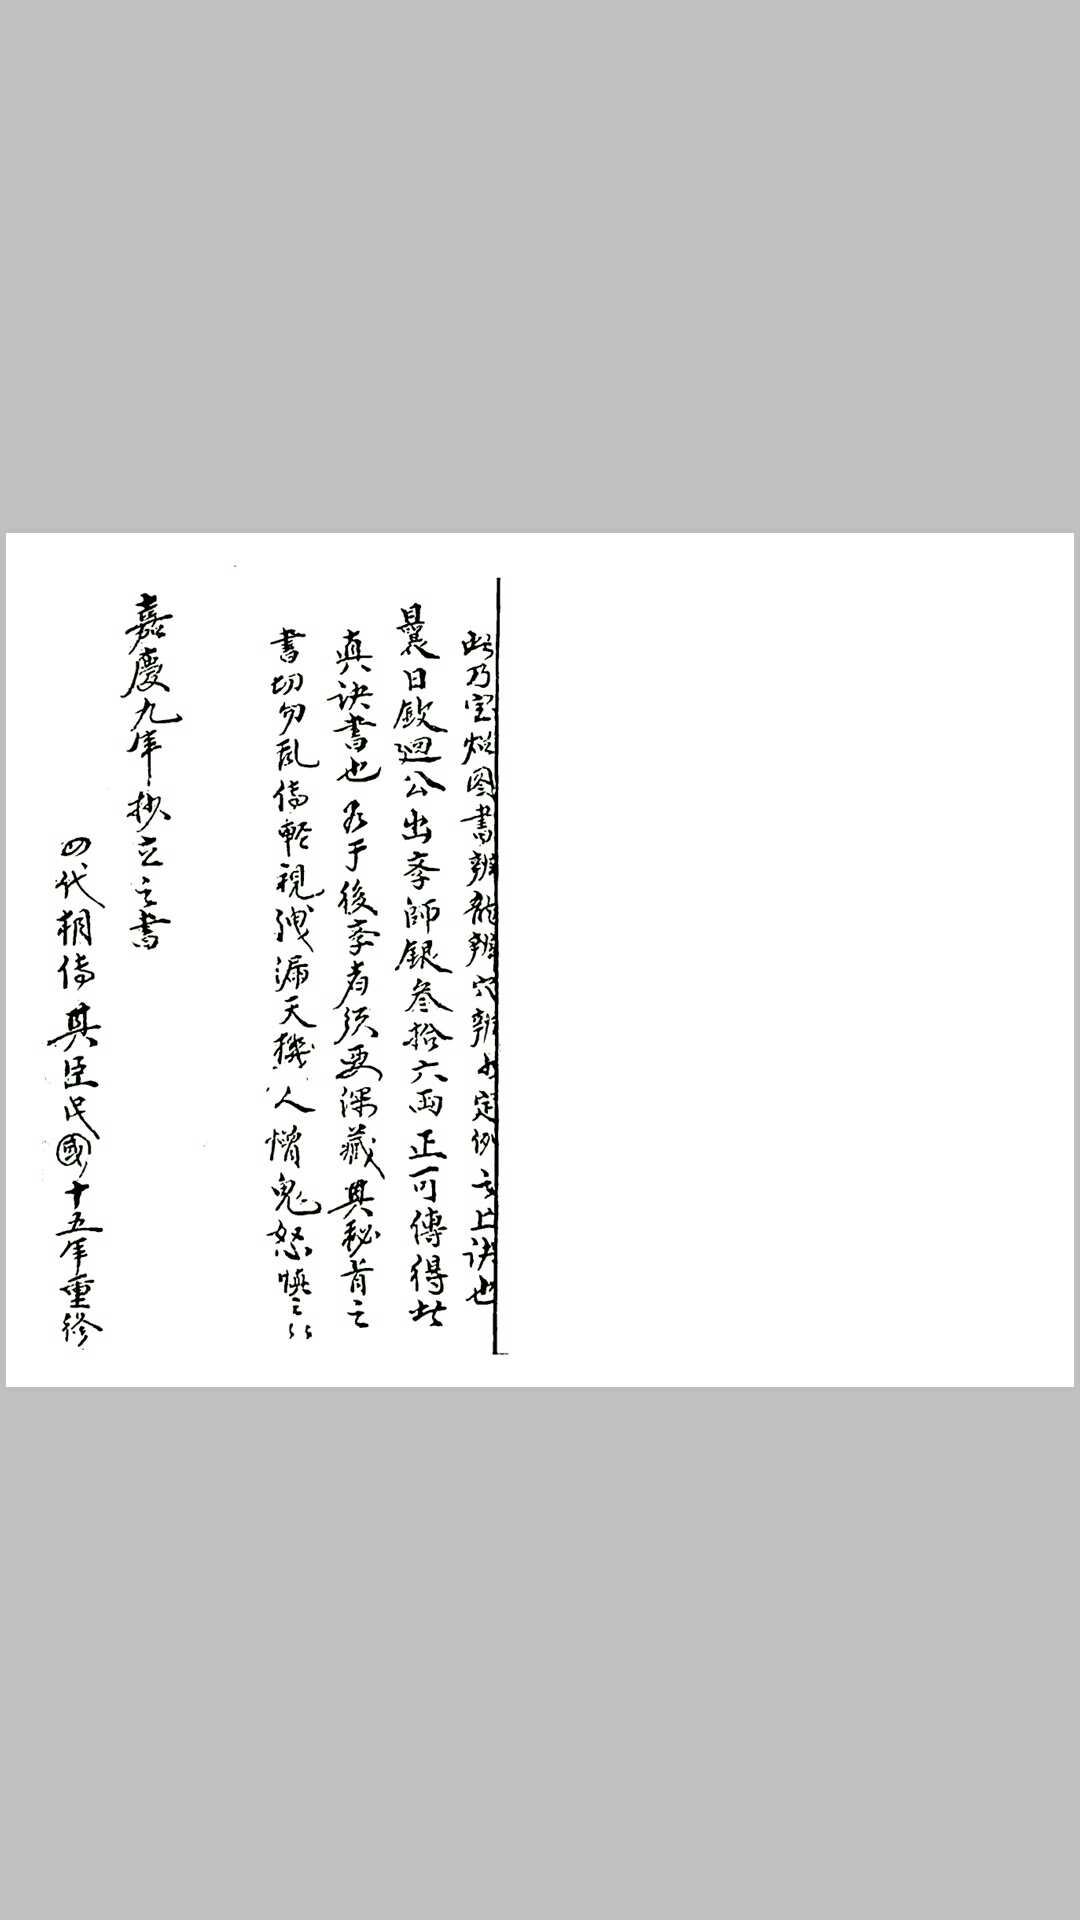 此乃宝燈图書辨龍辨穴辨水定例之上訣也
曩日欽迴公出李師銀叁拾六両正可傳得此
真訣書也 及于後李者须要深藏其秘旨之
書切勿乱傳輕視洩漏天機人憎鬼怒慎之〻
嘉慶九年抄立之書
四代相傳其臣民國十五年重修